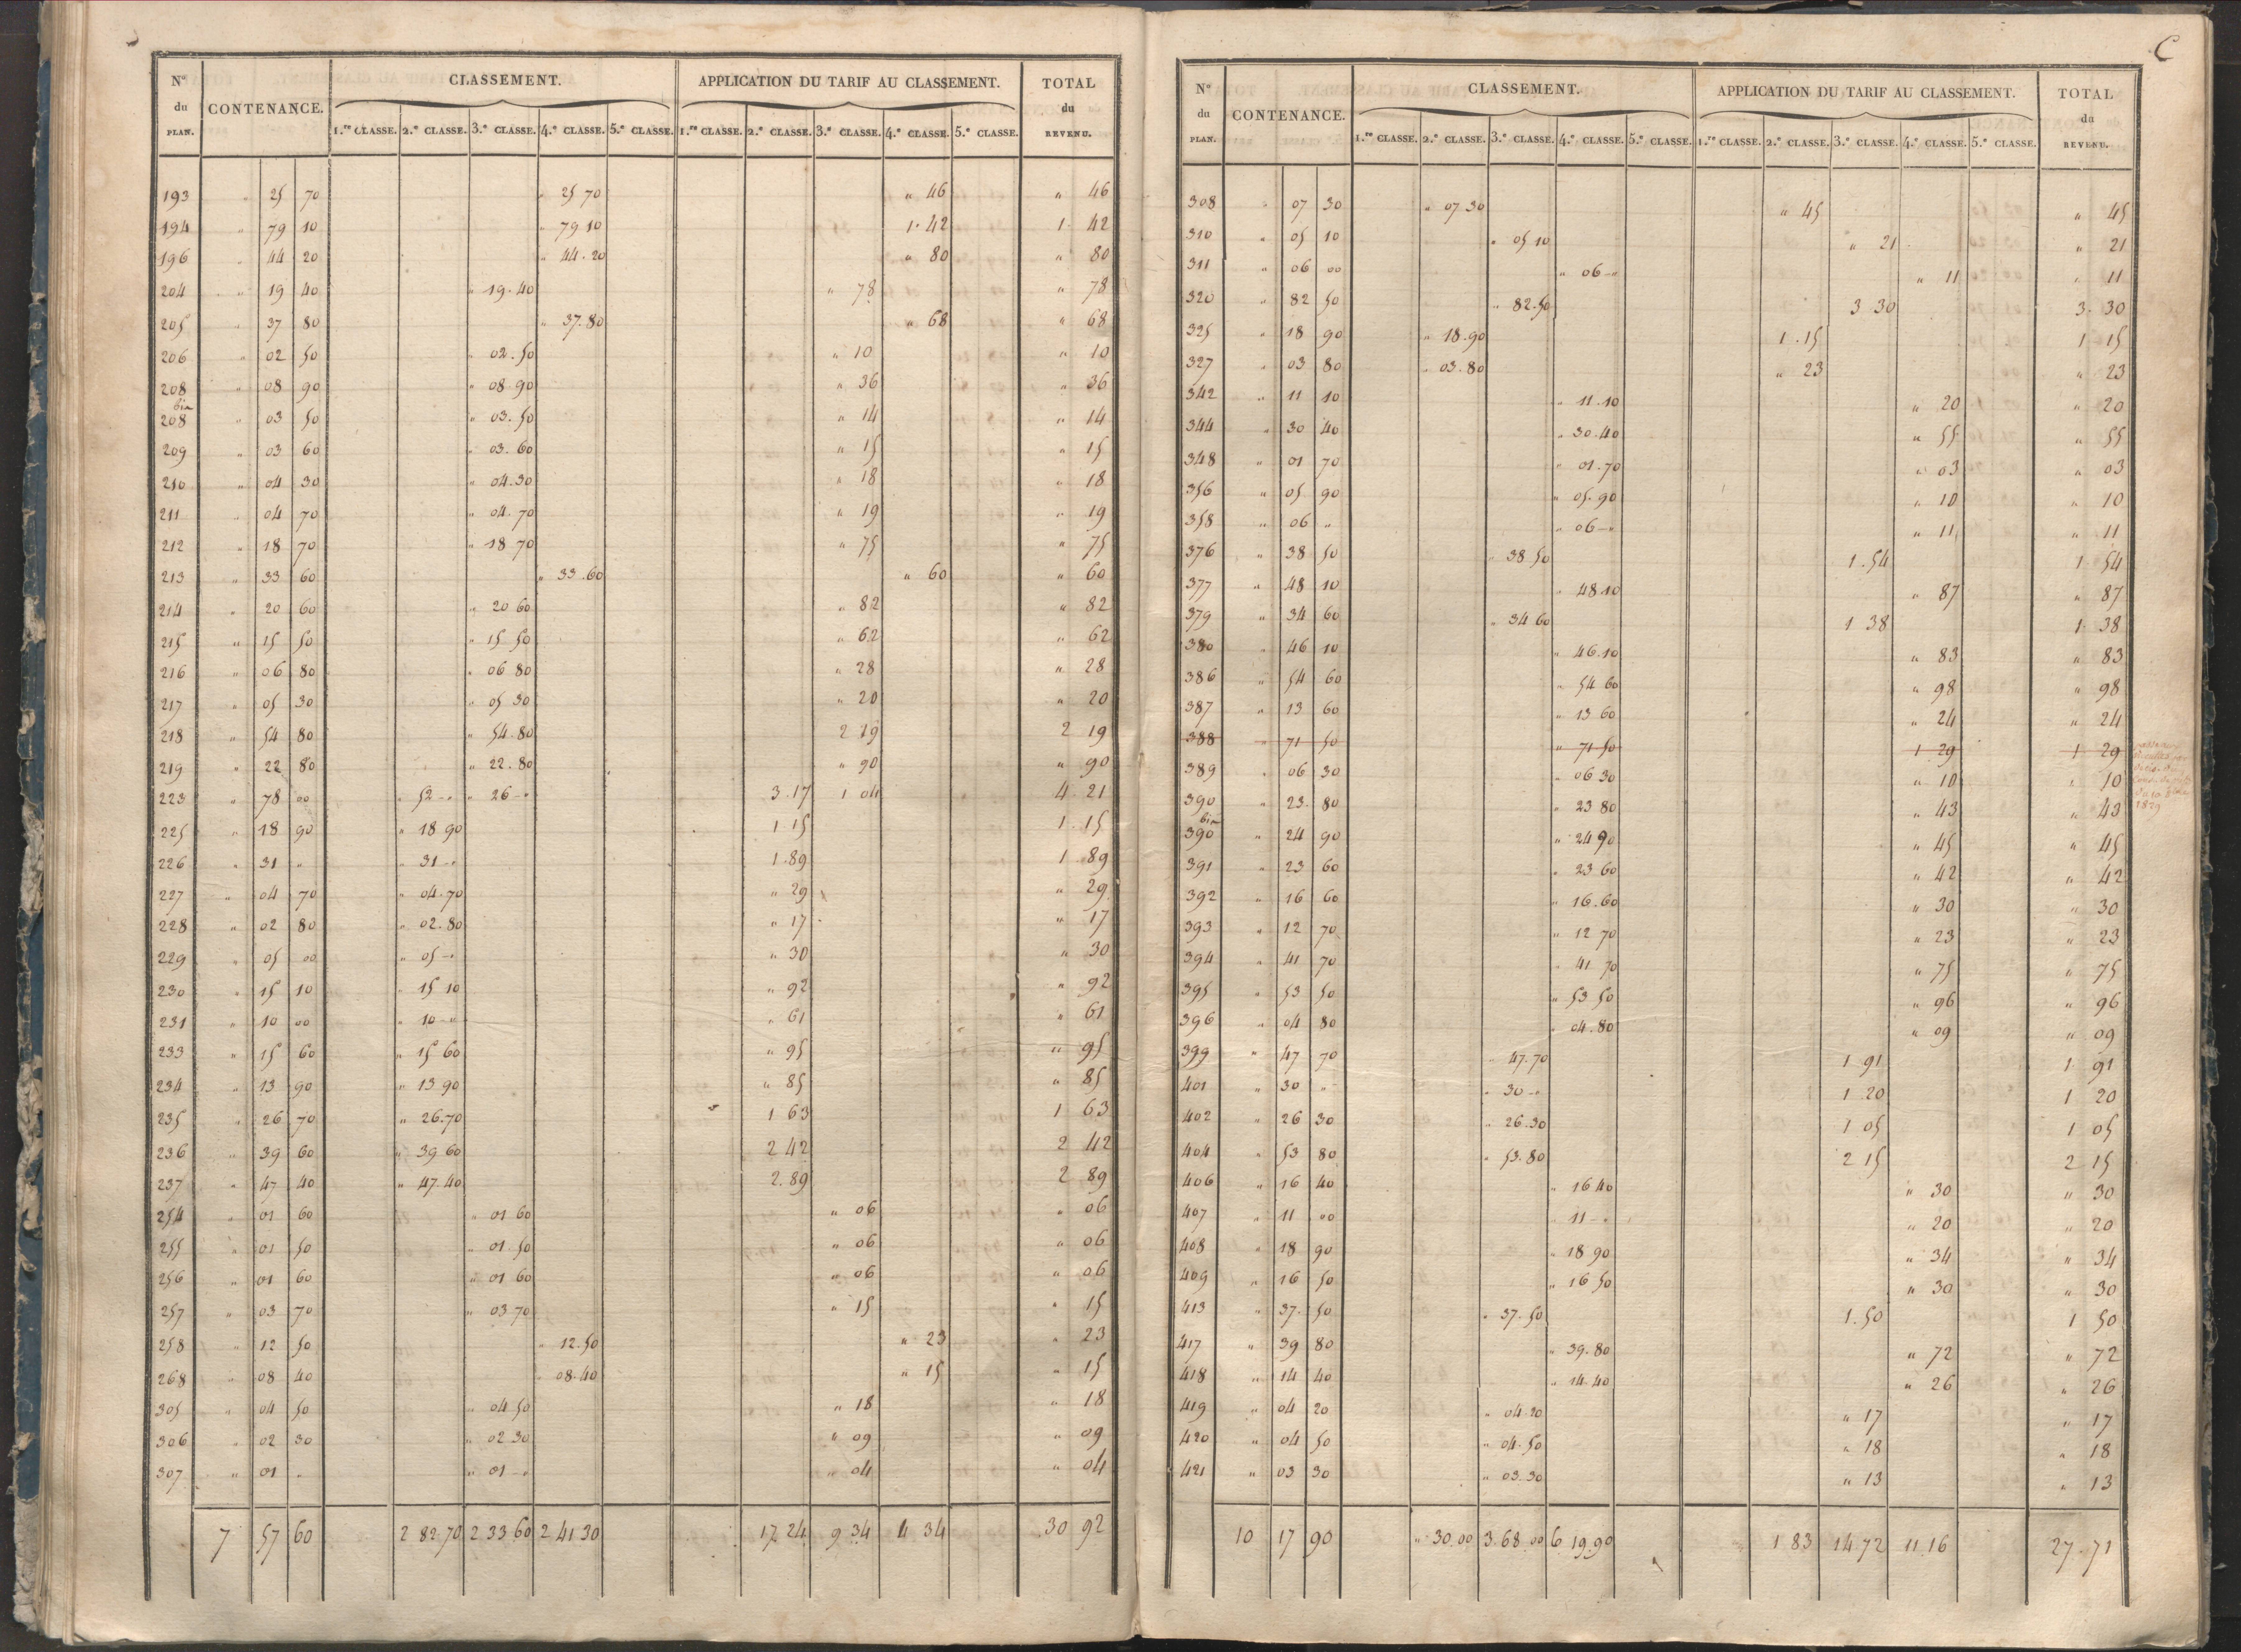 N° du PLAN. CONTENANCE. CLASSEMENT. APPLICATION DU TARIF AU CLASSEMENT. TOTAL du REVENU.
1.re CLASSE. 2.e CLASSE. 3.e CLASSE. 4.e CLASSE. 5.e CLASSE. 1.re CLASSE. 2.e CLASSE. 3.e CLASSE. 4.e CLASSE. 5.e CLASSE.
193 " 25 70 " 25 70 " 46 " 46
194 " 79 10 " 79 10 1. 42 1. 42
196 " 44 20 " 44. 20 " 80 " 80
204 " 19 40 " 19. 40 " 78 " 78
205 " 37 80 " 37. 80 " 68 " 68
206 " 02 50 " 02. 50 " 10 " 10
208 " 08 90 " 08. 90 " 36 " 36
208 bis " 03 50 " 03. 50 " 14 " 14
209 " 03 60 " 03. 60 " 15 " 15
210 " 04 30 " 04. 30 " 18 " 18
211 " 04 70 " 04. 70 " 19 " 19
212 " 18 70 " 18 70 " 75 " 75
213 " 33 60 " 33. 60 " 60 " 60
214 " 20 60 " 20 60 " 82 " 82
215 " 15 50 " 15 50 " 62 " 62
216 " 06 80 " 06 80 " 28 " 28
217 " 05 30 " 05 30 " 20 " 20
218 " 54 80 " 54. 80 2 19 2 19
219 " 22 80 " 22. 80 " 90 " 90
223 " 78 00 " 52 -" " 26 -" 3. 17 1 04 4. 21
225 " 18 90 " 18 90 1 15 1. 15
226 " 31 " " 31 -" 1. 89 1 89
227 " 04 70 " 04. 70 " 29 " 29
228 " 02 80 " 02. 80 " 17 " 17
229 " 05 00 " 05 -" " 30 " 30
230 " 15 10 " 15 10 " 92 " 92
231 " 10 00 " 10 -" " 61 " 61
233 " 15 60 " 15 60 " 95 " 95
234 " 13 90 " 13 90 " 85 " 85
235 " 26 70 " 26. 70 1 63 1 63
236 " 39 60 " 39. 60 2 42 2 42
237 " 47 40 " 47. 40 2. 89 2 89
254 " 01 60 " 01 60 " 06 " 06
255 " 01 50 " 01. 50 " 06 " 06
256 " 01 60 " 01 60 " 06 " 06
257 " 03 70 " 03 70 " 15 " 15
258 " 12 50 " 12. 50 " 23 " 23
268 " 08 40 " 08. 40 " 15 " 15
305 " 04 50 " 04. 50 " 18 " 18
306 " 02 30 " 02 30 " 09 " 09
307 " 01 " " 01 -" " 04 " 04
7 57 60 2 82. 70 2 33 60 2 41 30 17. 24 9 34 4 34 30 92
C
N° du PLAN. CONTENANCE. CLASSEMENT. APPLICATION DU TARIF AU CLASSEMENT. TOTAL du REVENU.
1.re CLASSE. 2.e CLASSE. 3.e CLASSE. 4.e CLASSE. 5.e CLASSE. 1.re CLASSE. 2.e CLASSE. 3.e CLASSE. 4.e CLASSE. 5.e CLASSE.
308 " 07 30 " 07 30 " 45 " 45
310 " 05 10 " 05 10 " 21 " 21
311 " 06 00 " 06 -" " 11 " 11
320 " 82 50 " 82. 50 3 30 3. 30
325 " 18 90 " 18. 90 1. 15 1 15
327 " 03 80 " 03. 80 " 23 " 23
342 " 11 10 " 11. 10 " 20 " 20
344 " 30 40 " 30. 40 " 55 " 55
348 " 01 70 " 01. 70 " 03 " 03
356 " 05 90 " 05. 90 " 10 " 10
358 " 06 " " 06 -" " 11 " 11
376 " 38 50 " 38 50 1. 54 1 54
377 " 48 10 " 48 10 " 87 " 87
379 " 34 60 " 34 60 1 38 1 38
380 " 46 10 " 46. 10 " 83 " 83
386 " 54 60 " 54 60 " 98 " 98
387 " 13 60 " 13 60 " 24 " 24
388 " 71 50 " 71 50 1 29 1 29
389 " 06 30 " 06 30 " 10 " 10
390 " 23. 80 " 23 80 " 43 " 43
1829
390 bis " 24 90 " 24 90 " 45 " 45
391 " 23 60 " 23 60 " 42 " 42
392 " 16 60 " 16. 60 " 30 " 30
393 " 12 70 " 12 70 " 23 " 23
394 " 41 70 " 41 70 " 75 " 75
395 " 53 50 " 53 50 " 96 " 96
396 " 04 80 " 04. 80 " 09 " 09
399 " 47 70 " 47. 70 1 91 1. 91
401 " 30 " " 30 -" 1 20 1 20
402 " 26 30 " 26. 30 1 05 1 05
404 " 53 80 " 53. 80 2 15 2 15
406 " 16 40 " 16 40 " 30 " 30
407 " 11 00 " 11 -" " 20 " 20
408 " 18 90 " 18 90 " 34 " 34
409 " 16 50 " 16 50 " 30 " 30
413 " 37. 50 " 37. 50 1. 50 1 50
417 " 39 80 " 39. 80 " 72 " 72
418 " 14 40 " 14. 40 " 26 " 26
419 " 04 20 " 04. 20 " 17 " 17
420 " 04 50 " 04. 50 " 18 " 18
421 " 03 30 " 03. 30 " 13 " 13
10 17 90 " 30. 00 3. 68 00 6 19. 90 1 83 14 72 11. 16 27. 71